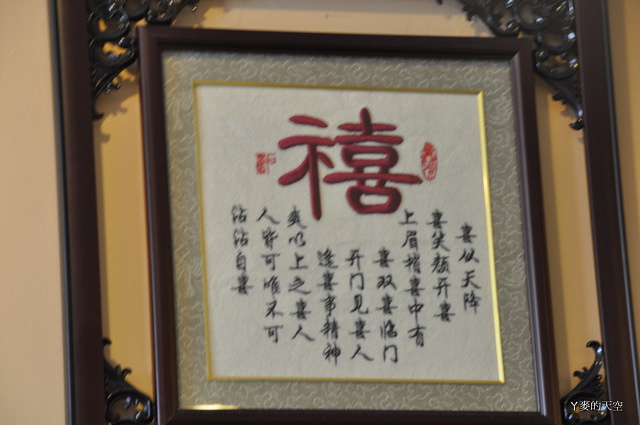 禧
喜从天降
喜笑颜开喜
上眉梢喜中有
喜双喜临门
开门见喜人
逢喜事精神
爽以上之喜人
人皆可唯不可
沾沾自喜
Y 麥的天空